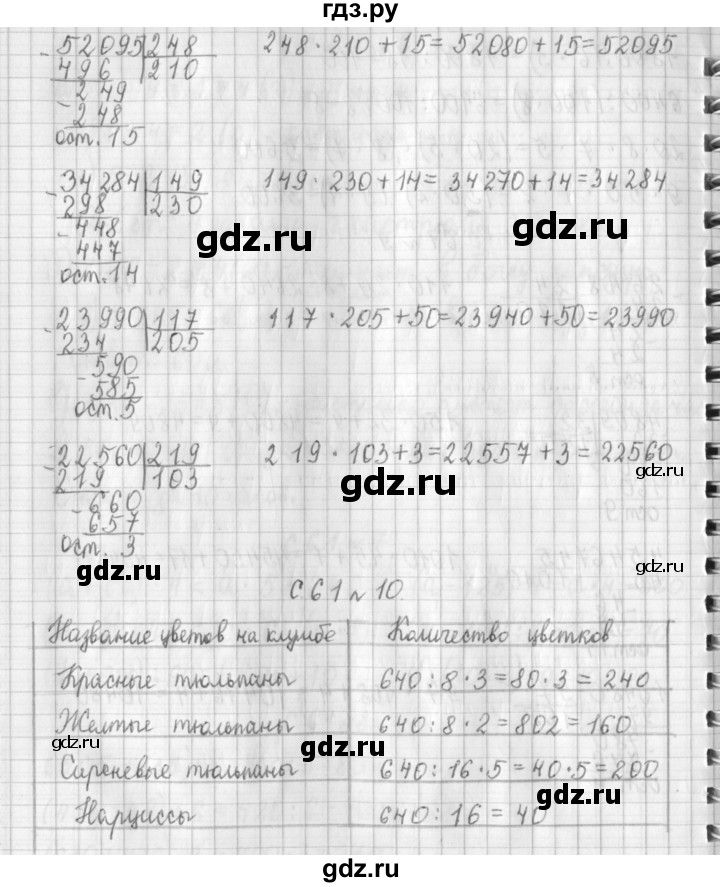 гдз.ру
52095|248 248·210+15=52080+15=52095
496 210
249
248
ост. 15
34284|149 149·230+14=34270+14=34284
298 230
gdz.ru
gdz.ru
448
447
ост. 14
23990|117 117·205+50=23940+50=23990
234 205
590
585
ост. 5
gdz.ru
gdz.ru
22560|219 219·103+3=22557+3=22560
219 103
gdz.ru
660
657
ост. 3
gdz.ru
с. 61 № 10.
Название цветов на клумбе Количество цветков
Красные тюльпаны 640:8·3=80·3=240
Желтые тюльпаны 640:8·2=802=160
gdz.ru
gdz.ru
Сиреневые тюльпаны 640:16·5=40·5=200
gdz.ru
Нарциссы 640:16=40
gdz.ru